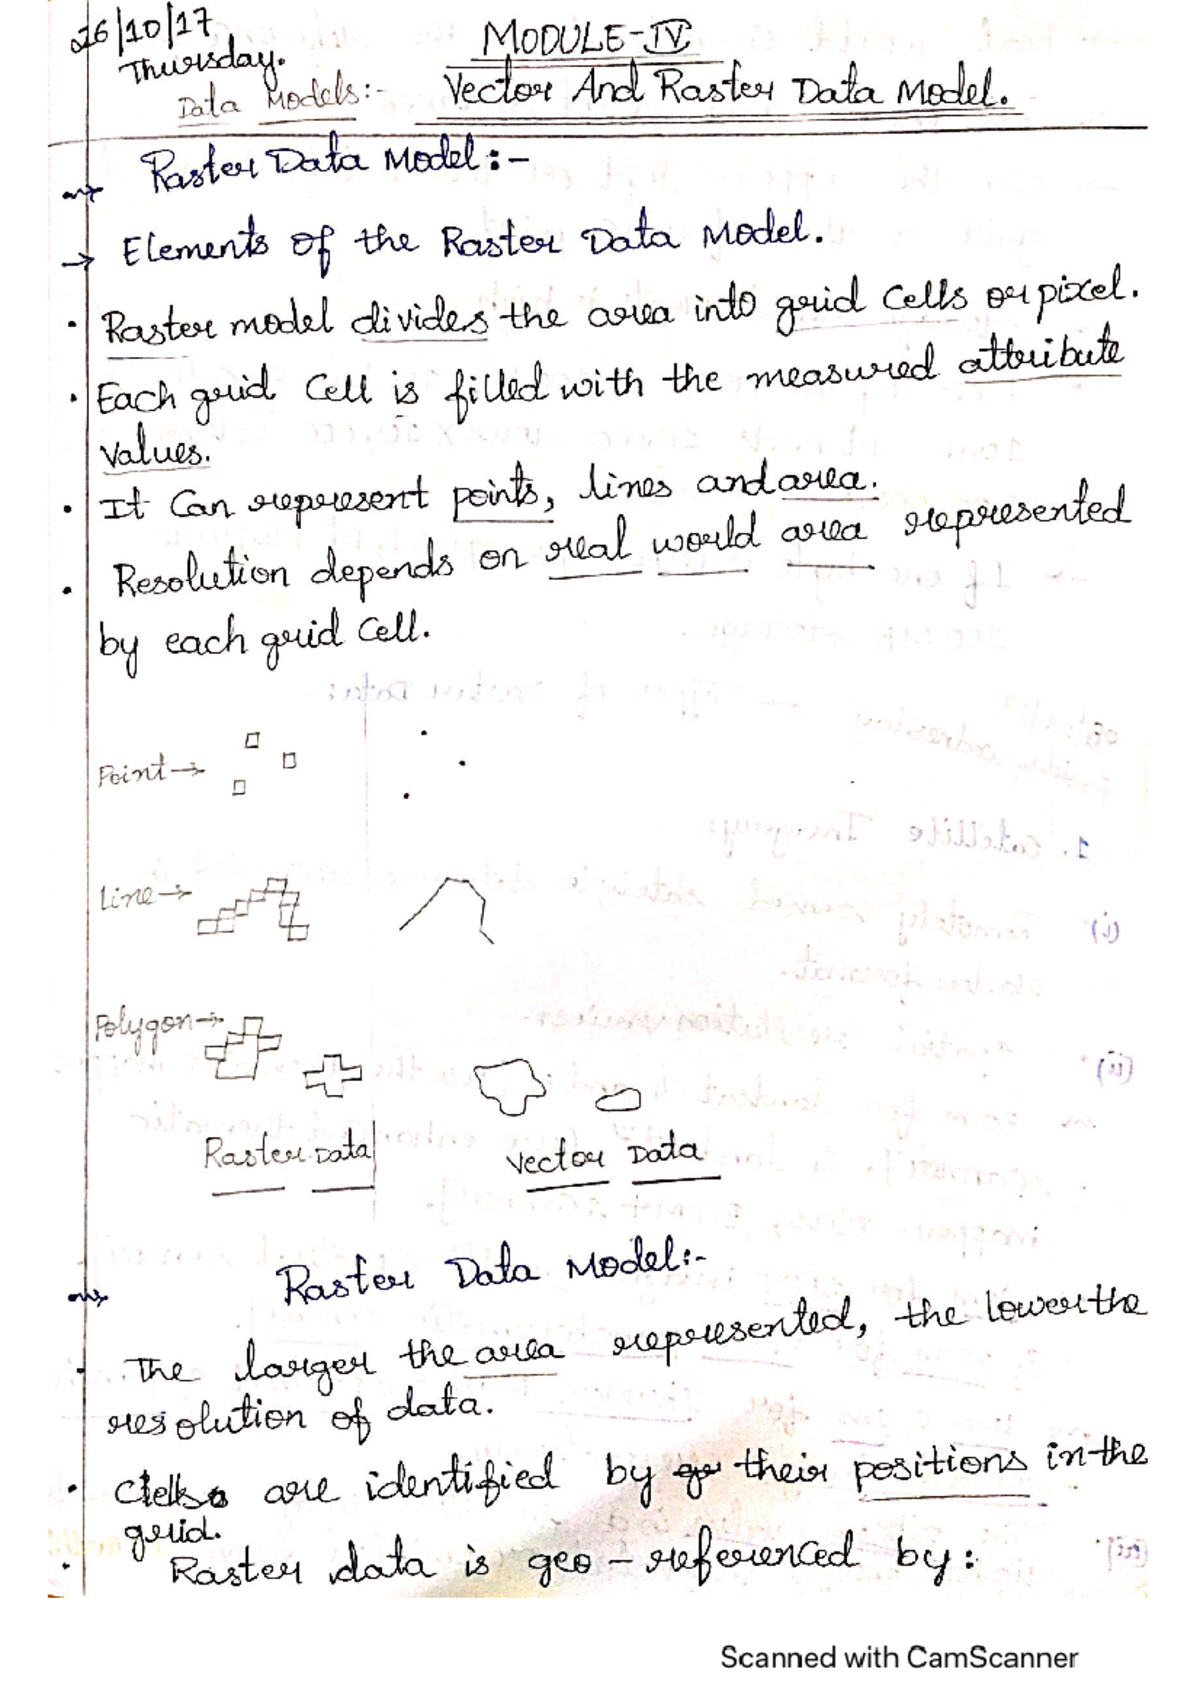 26/10/17
Thursday.
MODULE-IV
Data Models:- Vector And Raster Data Model.
Raster Data Model:-
→ Elements of the Raster Data Model.
• Raster model divides the area into grid cells or pixel.
• Each grid cell is filled with the measured attribute
values.
• It can represent points, lines and area.
• Resolution depends on real world area represented
by each grid cell.
Point→
Line→
Polygon→
Raster Data Vector Data
Raster Data Model:-
• The larger the area represented, the lower the
resolution of data.
• Cells are identified by their positions in the
grid.
• Raster data is geo-referenced by:
Scanned with CamScanner